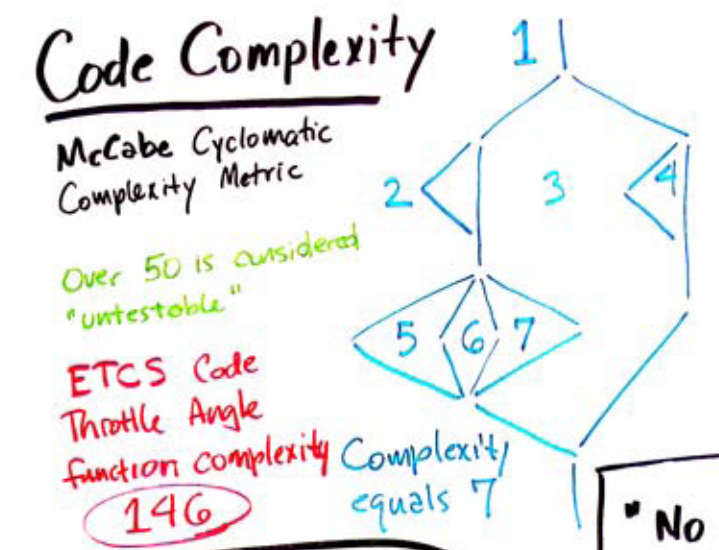 Code Complexity
McCabe Cyclomatic
Complexity Metric
Over 50 is considered
"untestable"
ETCS Code
Throttle Angle
function complexity
146
1
2
3
4
5 6 7
Complexity
equals 7
" No